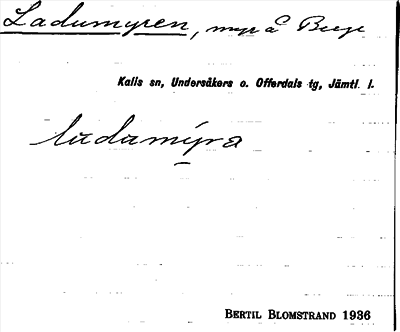 Ladumyren, myr å Berge
Kalls sn, Undersåkers o. Offerdals tg, Jämtl. l.
ladumýra
BERTIL BLOMSTRAND 1936